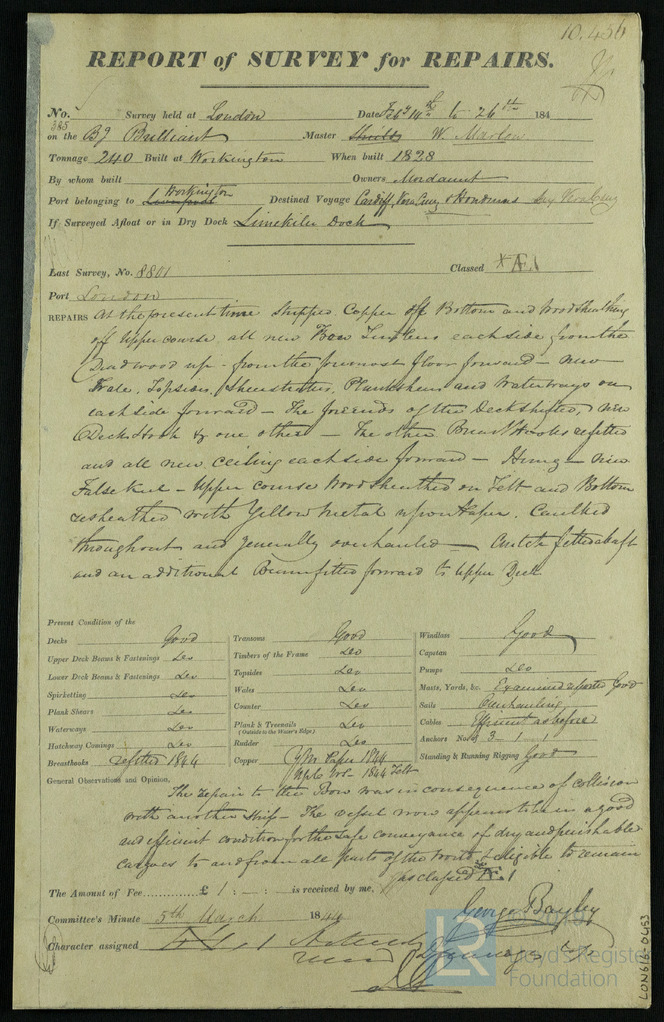 10.456
REPORT of SURVEY for REPAIRS.
No. 385 Survey held at London Date Feby 14th to 26th 184
on the Bg Brilliant Master W. Marlow
Tonnage 240 Built at Workington When built 1828
By whom built Owners Mordaunt
Port belonging to Workington Destined Voyage Cardiff, Vera Cruz & Honduras
If Surveyed Afloat or in Dry Dock Limekiln Dock
Last Survey, No. 8801 Classed Æ1
Port London
REPAIRS At the present time stripped Copper off Bottom and Wood Sheathing
off upper course, all new Bow Timbers each side from the
Deadwood up - from the foremost floor forward - New
Wale, Topsides, Sheerstrakes, Plankshears and Waterways on
each side forward - The fore ends of the Deck shifted, New
Deck Hook & one other - The other Breast Hooks refitted
and all new ceiling each side forward - New
False Keel - Upper course Wood Sheathed on Felt and Bottom
resheathed with Yellow Metal upon Paper. Caulked
throughout and generally overhauled - fitted abaft
and an additional Beam fitted forward to Upper Deck
Present Condition of the
Decks Good
Upper Deck Beams & Fastenings Do
Lower Deck Beams & Fastenings Do
Spirketting Do
Plank Shears Do
Waterways Do
Hatchway Comings Do
Breasthooks refitted 1844
Transoms Good
Timbers of the Frame Do
Topsides Do
Wales Do
Counter Do
Plank & Treenails Do
(Outside to the Water's Edge.)
Rudder Do
Copper YM Paper 1844
1844 Felt
Windlass Good
Capstan
Pumps Do
Masts, Yards, &c. Examined reported Good
Sails Overhauling
Cables Efficient as before
Anchors No. 3 1 1
Standing & Running Rigging Good
General Observations and Opinion.
The repair to the Bow was in consequence of collision
with another Ship - The vessel now appears to be in a good
and efficient condition for the safe conveyance of dry and perishable
cargoes to and from all parts of the World & eligible to remain
as classed Æ1
The Amount of Fee......£ 1 : - : - is received by me,
George Bayley
Committee's Minute 5th March 1844
Character assigned
LR
Lloyd's Register
Foundation
LON616-0453